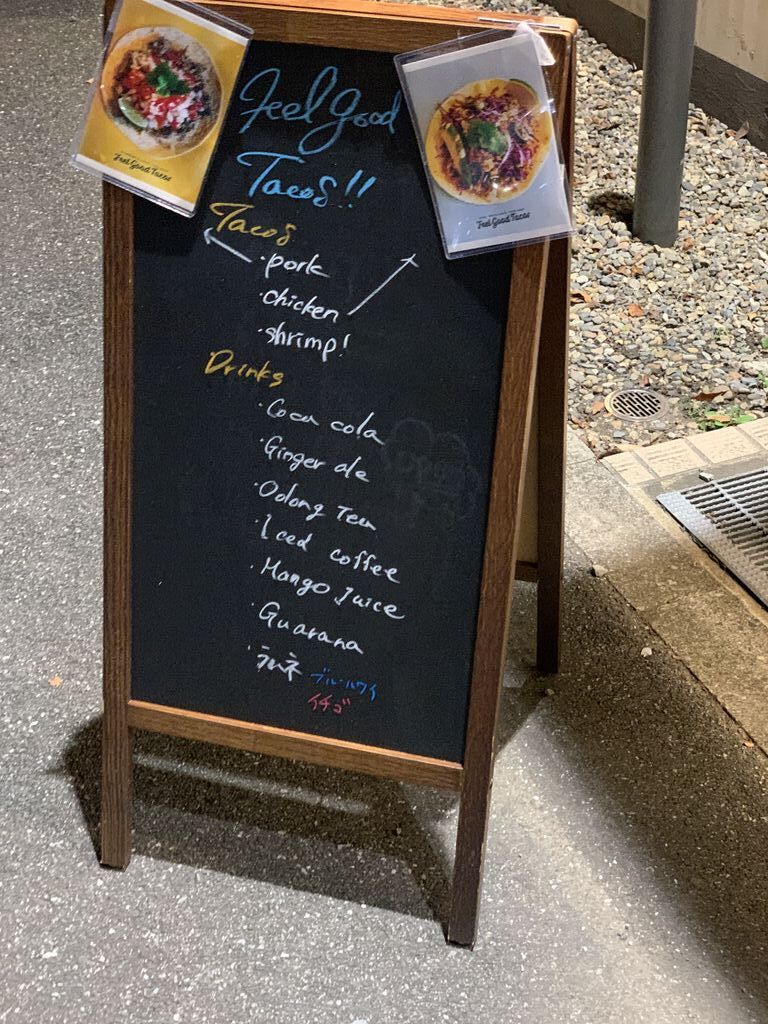 Feel Good
Tacos!!
Feel Good Tacos
Feel Good Tacos
Tacos
・pork
・chicken
・shrimp!
Drinks
・Coca cola
・Ginger ale
・Oolong Tea
・Iced coffee
・Mango Juice
・Guarana
・ラムネ ブルーハワイ
イチゴ